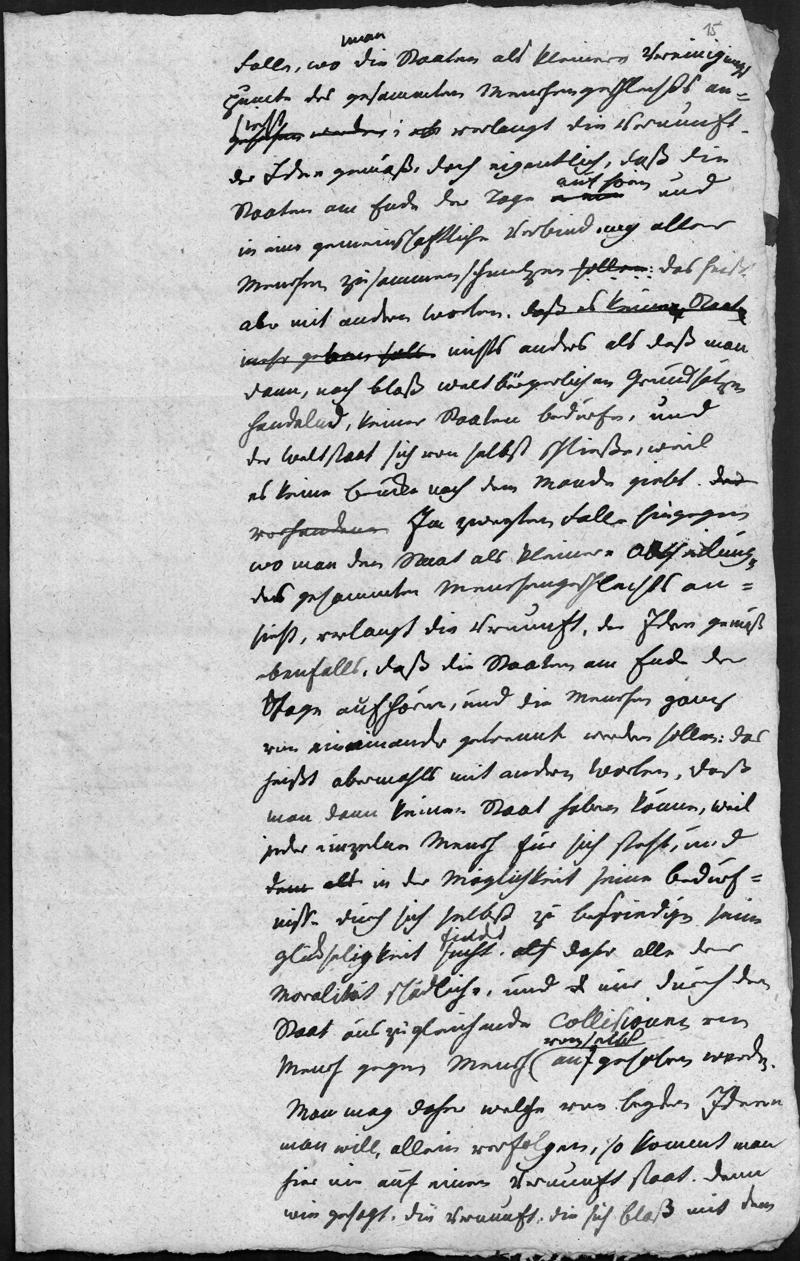 15
man
Falle, wo die Staaten als kleinere Vereinigungs
puncte des gesammten Menschengeschlechts an=
sieht
gesehen werden; verlangt die Vernunft
der Idee gemäß, doch eigentlich, daß die
aufhören
Staaten am Ende der Tage und
in eine gemeinschaftliche Verbindung aller
Menschen zusammenschmelzen sollen: das heißt
aber mit andern Worten, daß es keine Staaten
mehr geben soll nichts anders als daß man
dann, nach bloß weltbürgerlichen Grundsätzen
handelnd, keiner Staaten bedürfe, und
der Weltstaat sich von selbst schließe, weil
es keine Brücke nach dem Monde giebt. der
vorhandenen Im zweyten Falle hingegen
wo man den Staat als kleinere Abtheilung
des gesammten Menschengeschlechts an=
sieht, verlangt die Vernunft, der Idee gemäß
ebenfalls, daß die Staaten am Ende der
Tage aufhören, und die Menschen ganz
von einander getrennt werden sollen: das
heißt abermahls mit andern Worten, daß
man dann keinen Staat haben könne, weil
jeder einzelne Mensch für sich steht, und
dann als in der Möglichkeit seine Bedürf=
nisse durch sich selbst zu befriedigen seine
findet
glückseligkeit sucht. daher alle der
Moralität schädliche, und nur durch den
Staat auszugleichende Collisionen von
von selbst
Mensch gegen Mensch aufgehoben werden.
Man mag daher welche von beyden Ideen
man will, allein verfolgen, so koment man
hier nie auf einen Vernunftstaat. denn
wie gesagt, die Vernunft, die sich bloß mit dem